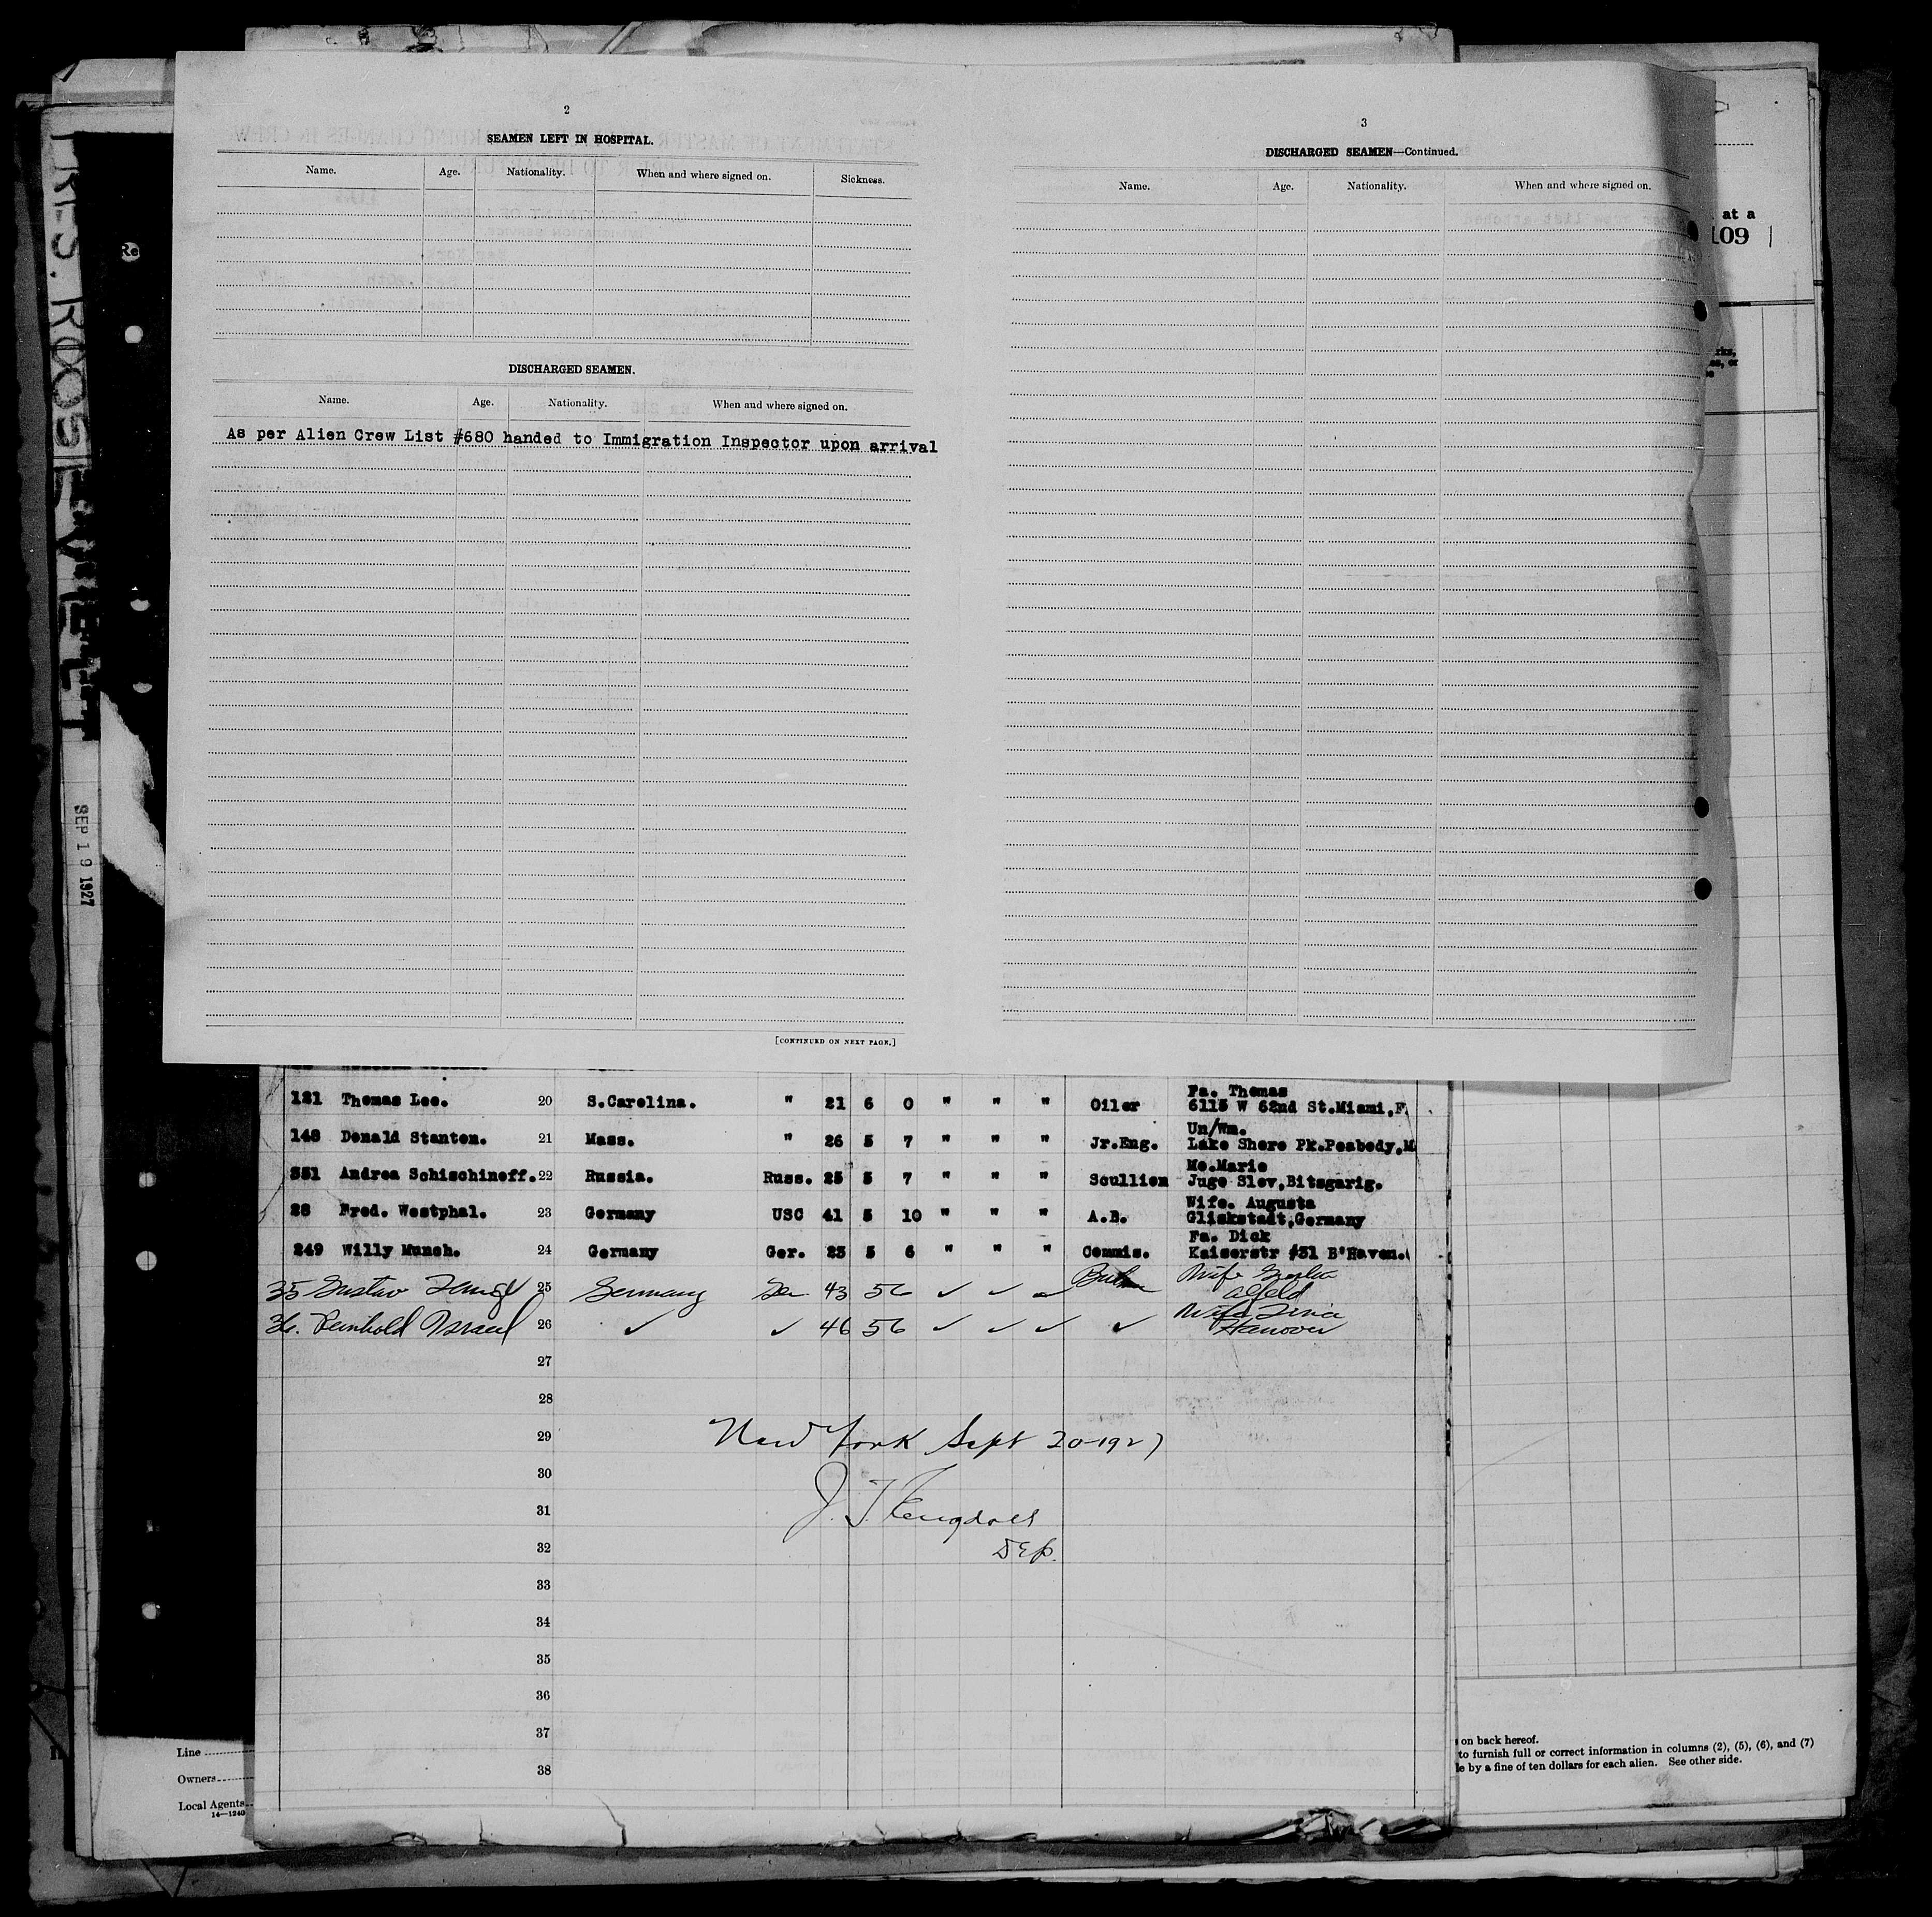 PRES. ROOSEVELT
SEP 19 1927
Re
2
SEAMEN LEFT IN HOSPITAL.
Name. Age. Nationality. When and where signed on. Sickness.
DISCHARGED SEAMEN.
Name. Age. Nationality. When and where signed on.
As per Alien Crew List #680 handed to Immigration Inspector upon arrival
[CONTINUED ON NEXT PAGE.]
3
DISCHARGED SEAMEN—Continued.
Name. Age. Nationality. When and where signed on.
at a
109
121 Thomas Lee. 20 S.Carolina. " 21 6 0 " " " Oiler Fa. Thomas
6115 W 62nd St.Miami,F.
148 Donald Stanton. 21 Mass. " 26 5 7 " " " Jr.Eng. Un/Wm.
Lake Shore Pk.Peabody.M
351 Andrea Schischinoff. 22 Russia. Russ. 25 5 7 " " " Scullion Mo.Marie
Juge Slov,Bitsgarig.
28 Fred. Westphal. 23 Germany USC 41 5 10 " " " A.B. Wife. Augusta
Gliskstadt,Germany
249 Willy Munch. 24 Germany Ger. 23 5 6 " " " Commis. Fa. Dick
Kaiserstr #31 B'Haven.
35 Gustav 25 Germany Ger 43 56 ✓ ✓ ✓ Wife
Alfeld
36. Reinhold Israel 26 ✓ ✓ 46 56 ✓ ✓ ✓ ✓ Wife
Hanover
27
28
29 New York Sept 20-1927
30
31 J. T.
32 DEP.
33
34
35
36
37
38
Line
Owners
Local Agents
14—1240
on back hereof.
to furnish full or correct information in columns (2), (5), (6), and (7)
le by a fine of ten dollars for each alien. See other side.